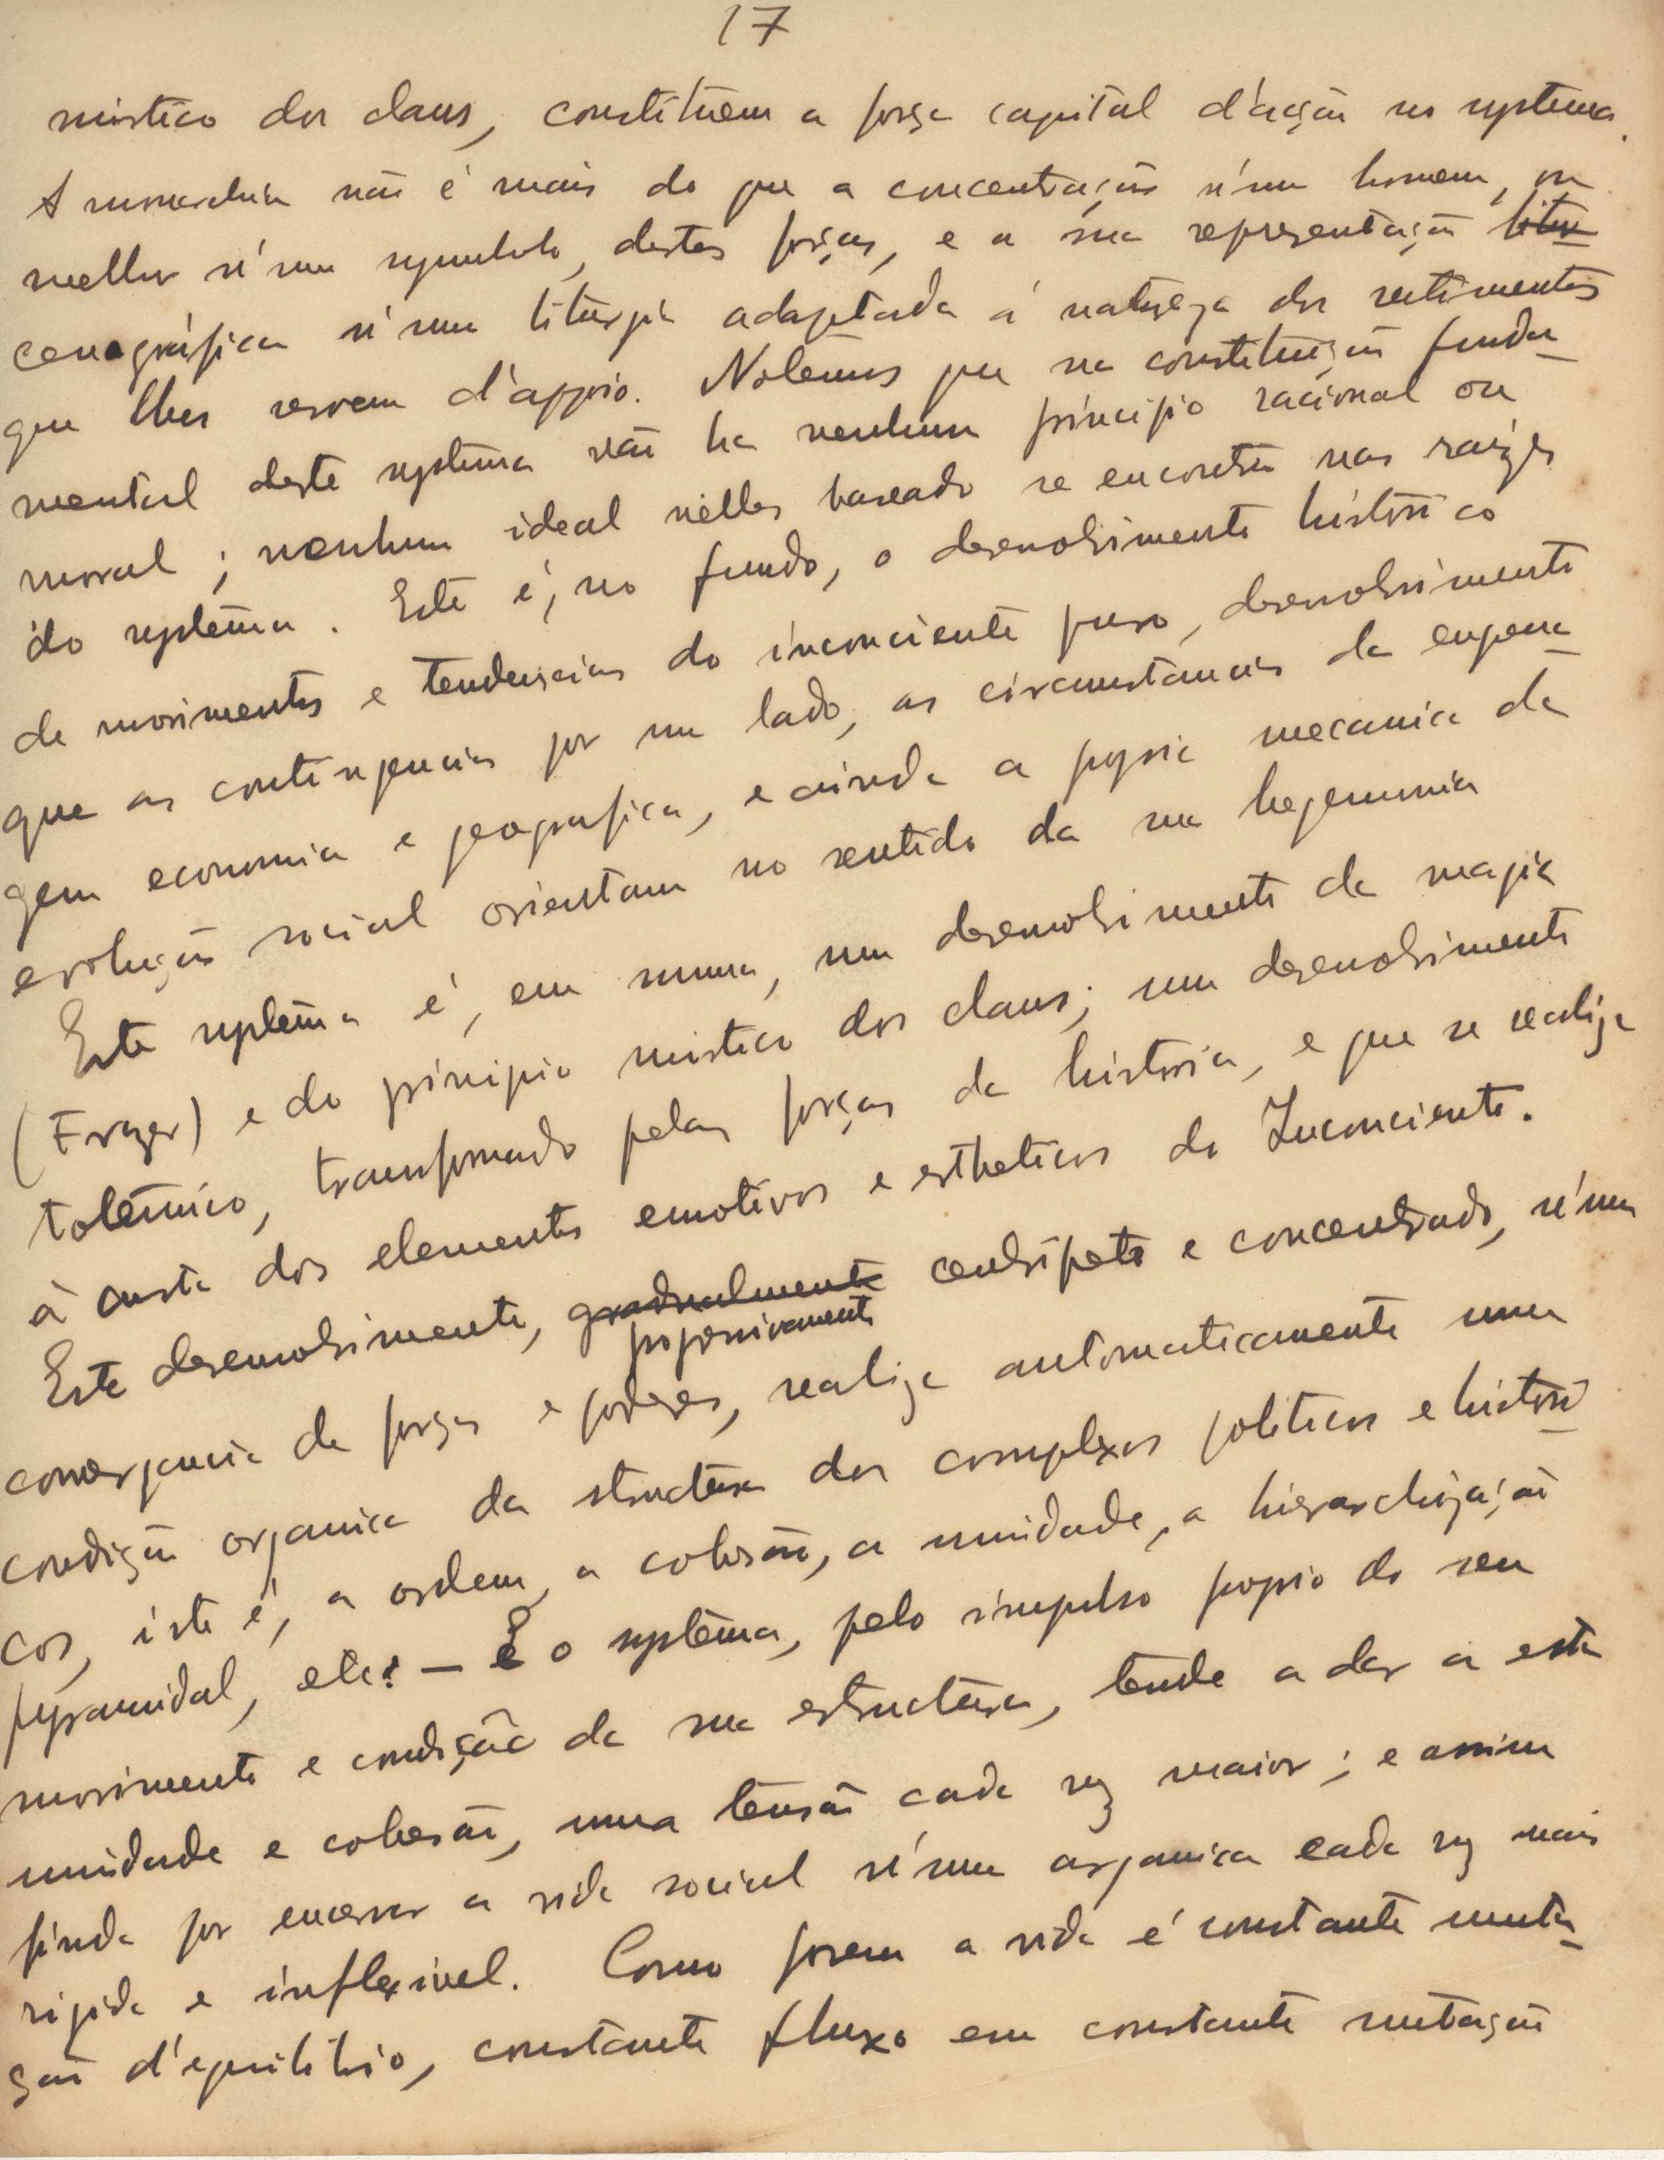 17
mistico dos clans, constituem a força capital d'acção no systema.
A monarchia não é mais do que a concentração n'um homem, ou
melhor n'um symbolo, destas forças, e a sua representação litur
cenográfica n'uma liturgia adaptada á natureza dos sentimentos
que lhes servem d'appoio. Notemos que na constituição funda-
mental deste systema não ha nenhum principio racional ou
moral; nenhum ideal nelles baseado se encontra nas raizes
do systema. Este é, no fundo, o desenvolvimento histórico
de movimentos e tendencias do inconciente puro, desenvolvimento
que as contingencias por um lado, as circunstancias da engrena-
gem economica e geografica, e ainda a propria mecanica da
evolução social orientam no sentido da sua hegemonia
Este systema é, em summa, um desenvolvimento da magia
(Frazer) e do principio mistico dos clans; um desenvolvimento
totémico, transformado pelas forças da historia, e que se realiza
à custa dos elementos emotivos e estheticos do Inconciente.
Este desenvolvimento, gradualmente centripeto e concentrado, n'uma
progressivamente
convergencia de forças e poderes, realiza automaticamente uma
condição organica da structura dos complexos politicos e históri-
cos, isto é, a ordem, a cohesão, a unidade, a hierarchização
pyramidal, etc: — E o systema, pelo impulso proprio do seu
movimento e condição da sua estructura, tende a dar a esta
unidade e cohesão, uma tensão cada vez maior; e assim
finda por encerrar a vida social n'uma organica cada vez mais
rigida e inflexivel. Como porem a vida é constante muta-
ção d'equilibrio, constante fluxo em constante mutação